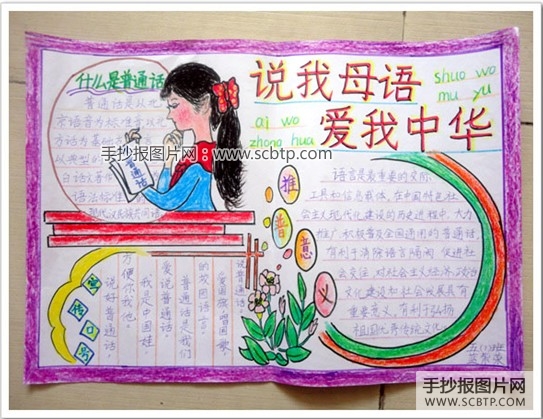 什么是普通话
普通话是以北
京语音为标准音以北
方话为基础方言
以典型的
白话文著作
语法标准
现代汉民族共同语
普通话
手抄报图片网：www.scbtp.com
说我母语
shuo wo
mu yu
ai wo
zhong hua
爱我中华
推
普
意
义
语言是最重要的交际
工具和信息载体，在中国特色社
会主义现代化建设的历史进程中，大力
推广、积极普及全国通用的普通话，
有利于消除语言隔阂，促进社
会交往，对社会主义经济、政治
文化建设和社会发展具有
重要意义，有利于弘扬
祖国优秀传统文化
说普通话，
唱国歌。
的校园语言。
普通话是我们
爱说普通话。
我是中国娃，
方便你我他。
说好普通话，
手抄报图片网
WWW.SCBTP.COM